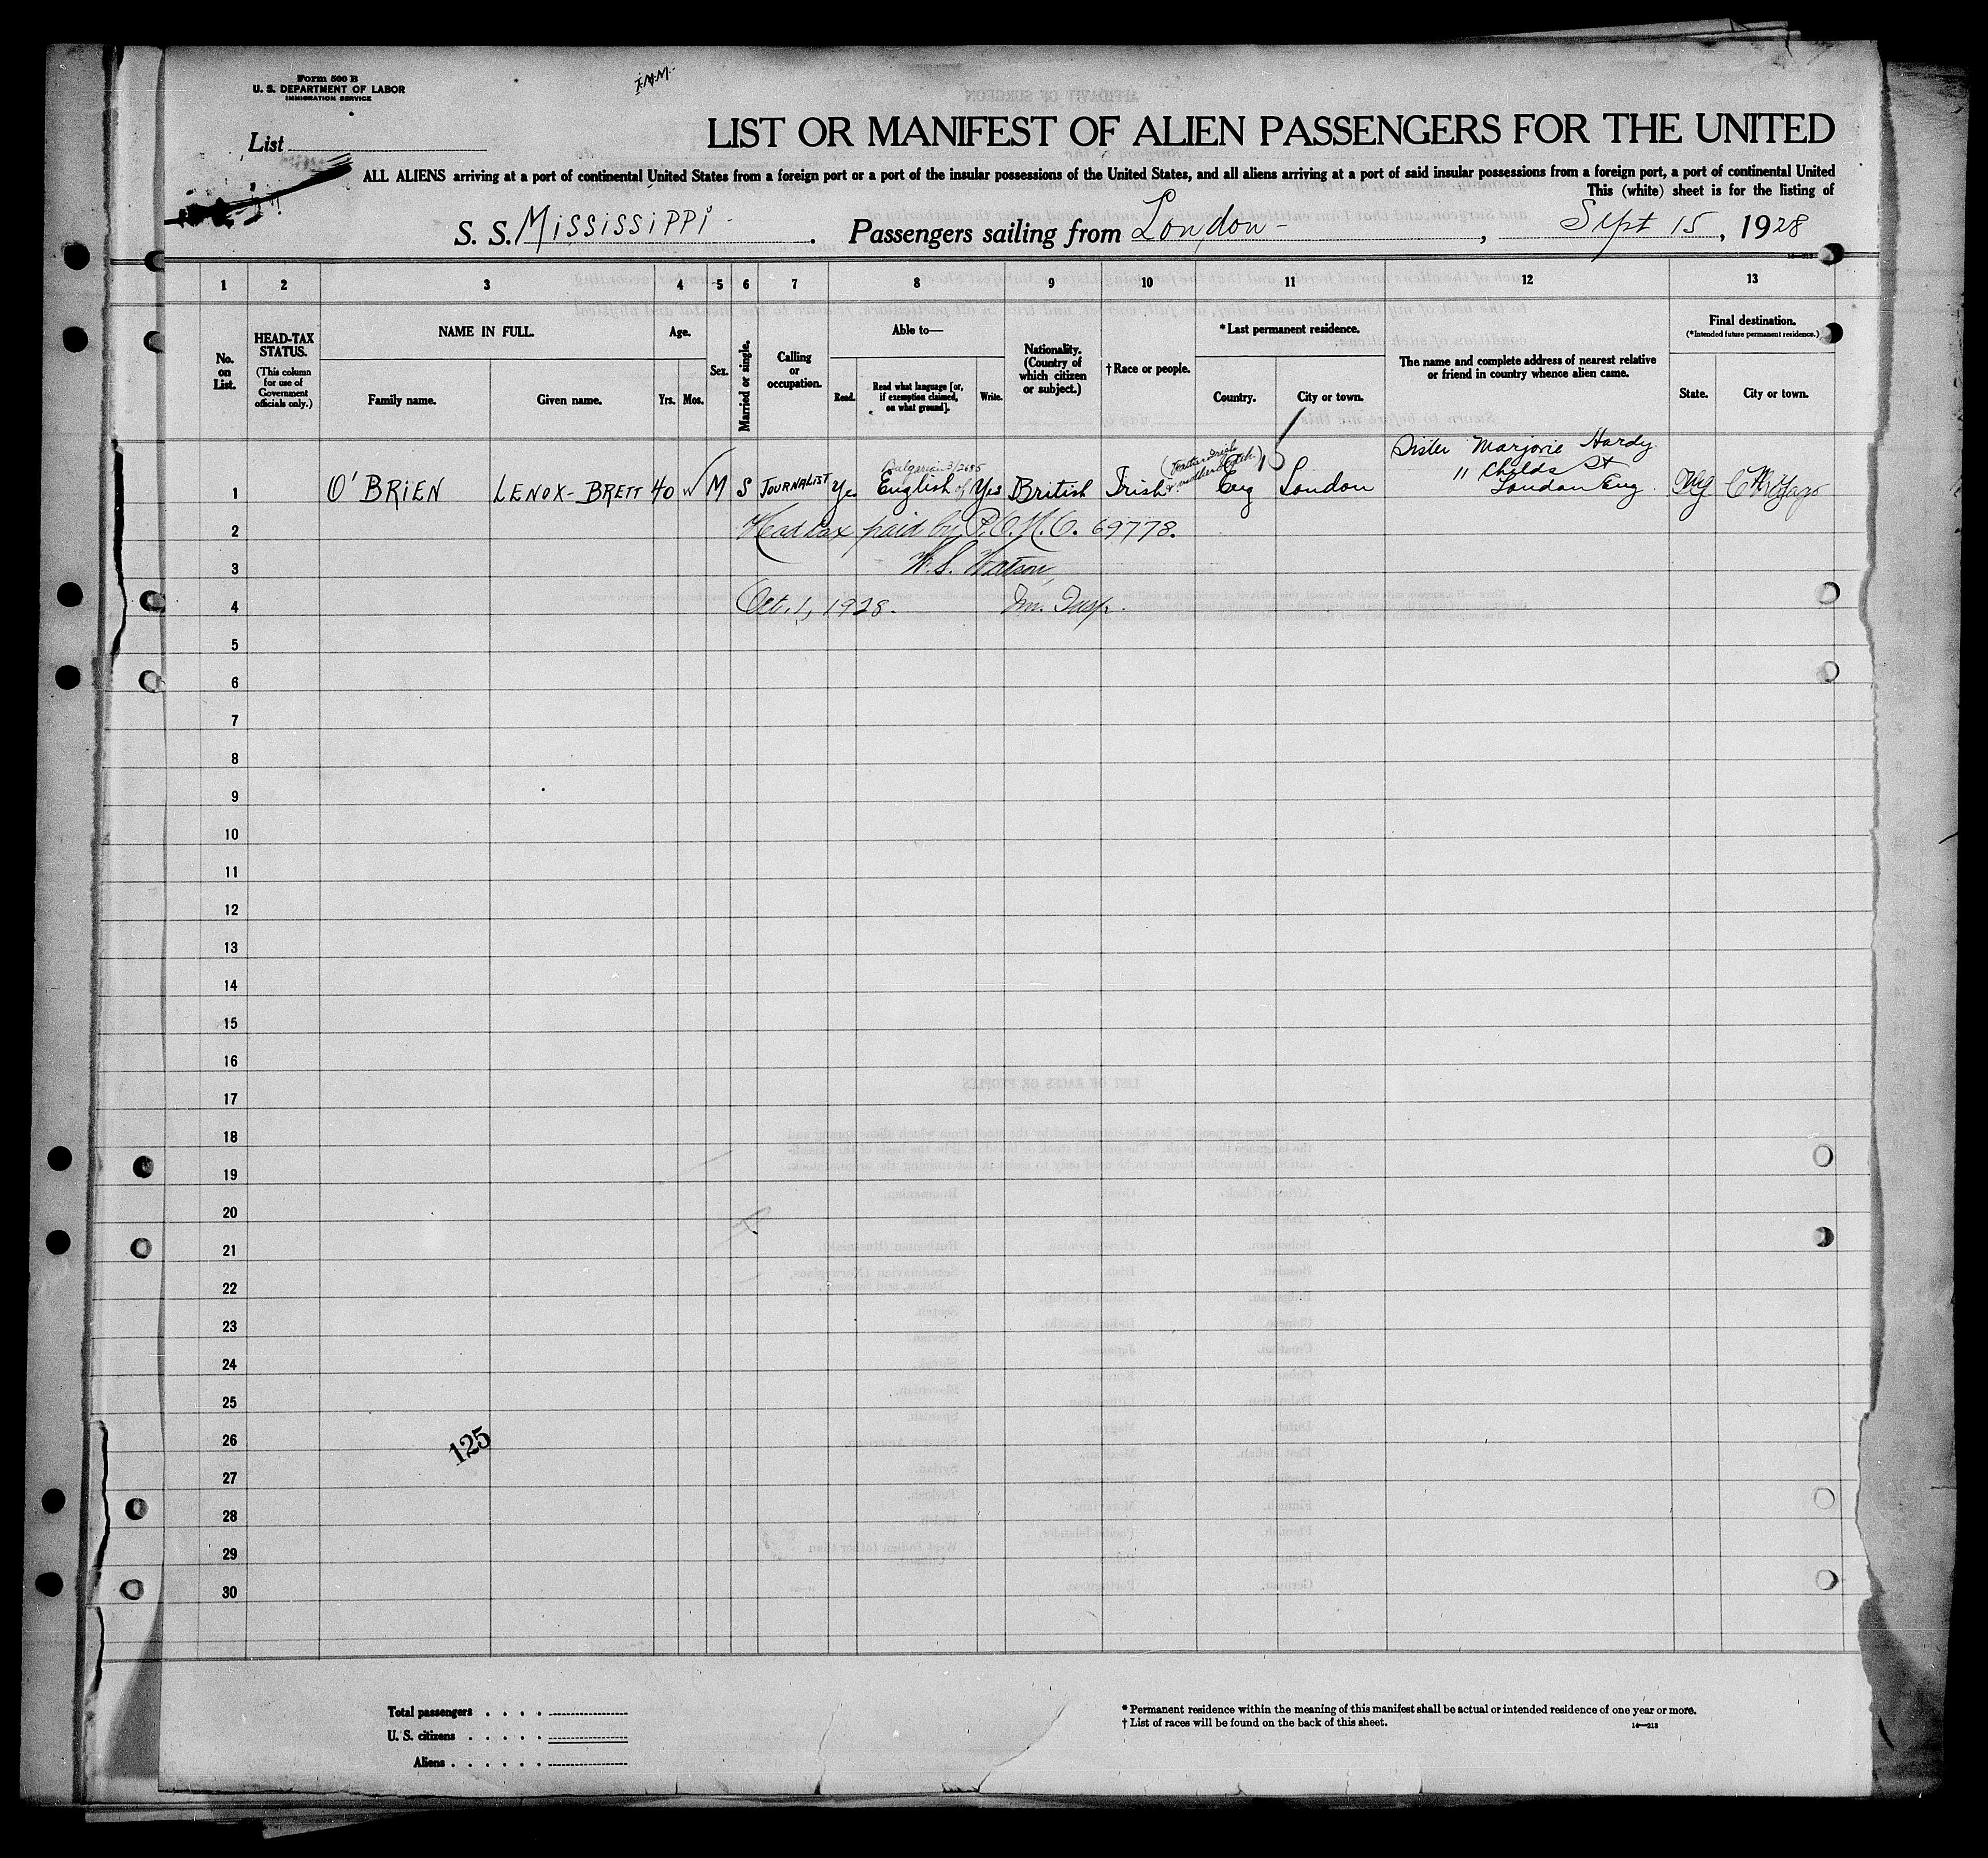 Form 500 B
U. S. DEPARTMENT OF LABOR
IMMIGRATION SERVICE
List
LIST OR MANIFEST OF ALIEN PASSENGERS FOR THE UNITED
ALL ALIENS arriving at a port of continental United States from a foreign port or a port of the insular possessions of the United States, and all aliens arriving at a port of said insular possessions from a foreign port, a port of continental United
This (white) sheet is for the listing of
S. S. MISSISSIPPI - . Passengers sailing from London - , Sept 15, 1928
1 2 3 4 5 6 7 8 9 10 11 12 13
No. on List.
HEAD-TAX STATUS.
(This column for use of Government officials only.)
NAME IN FULL.
Family name.
Given name.
Age.
Yrs.
Mos.
Sex.
Married or single.
Calling or occupation.
Able to—
Read.
Read what language [or, if exemption claimed, on what ground].
Write.
Nationality. (Country of which citizen or subject.)
† Race or people.
* Last permanent residence.
Country.
City or town.
The name and complete address of nearest relative or friend in country whence alien came.
Final destination.
(*Intended future permanent residence.)
State.
City or town.
Sister Marjorie Hardy
11 Childs St
London Eng.
Bulgarian
1 O'BRIEN LENOX-BRETT 40 M S JOURNALIST Yes English Yes British Irish Eng London Chicago
2 Head tax paid by 69778.
3 W. S. Watson
4 Oct. 1, 1928. Im. Insp.
5
6
7
8
9
10
11
12
13
14
15
16
17
18
19
20
21
22
23
24
25
26
125
27
28
29
30
Total passengers
U. S. citizens
Aliens
* Permanent residence within the meaning of this manifest shall be actual or intended residence of one year or more.
† List of races will be found on the back of this sheet.
14—213